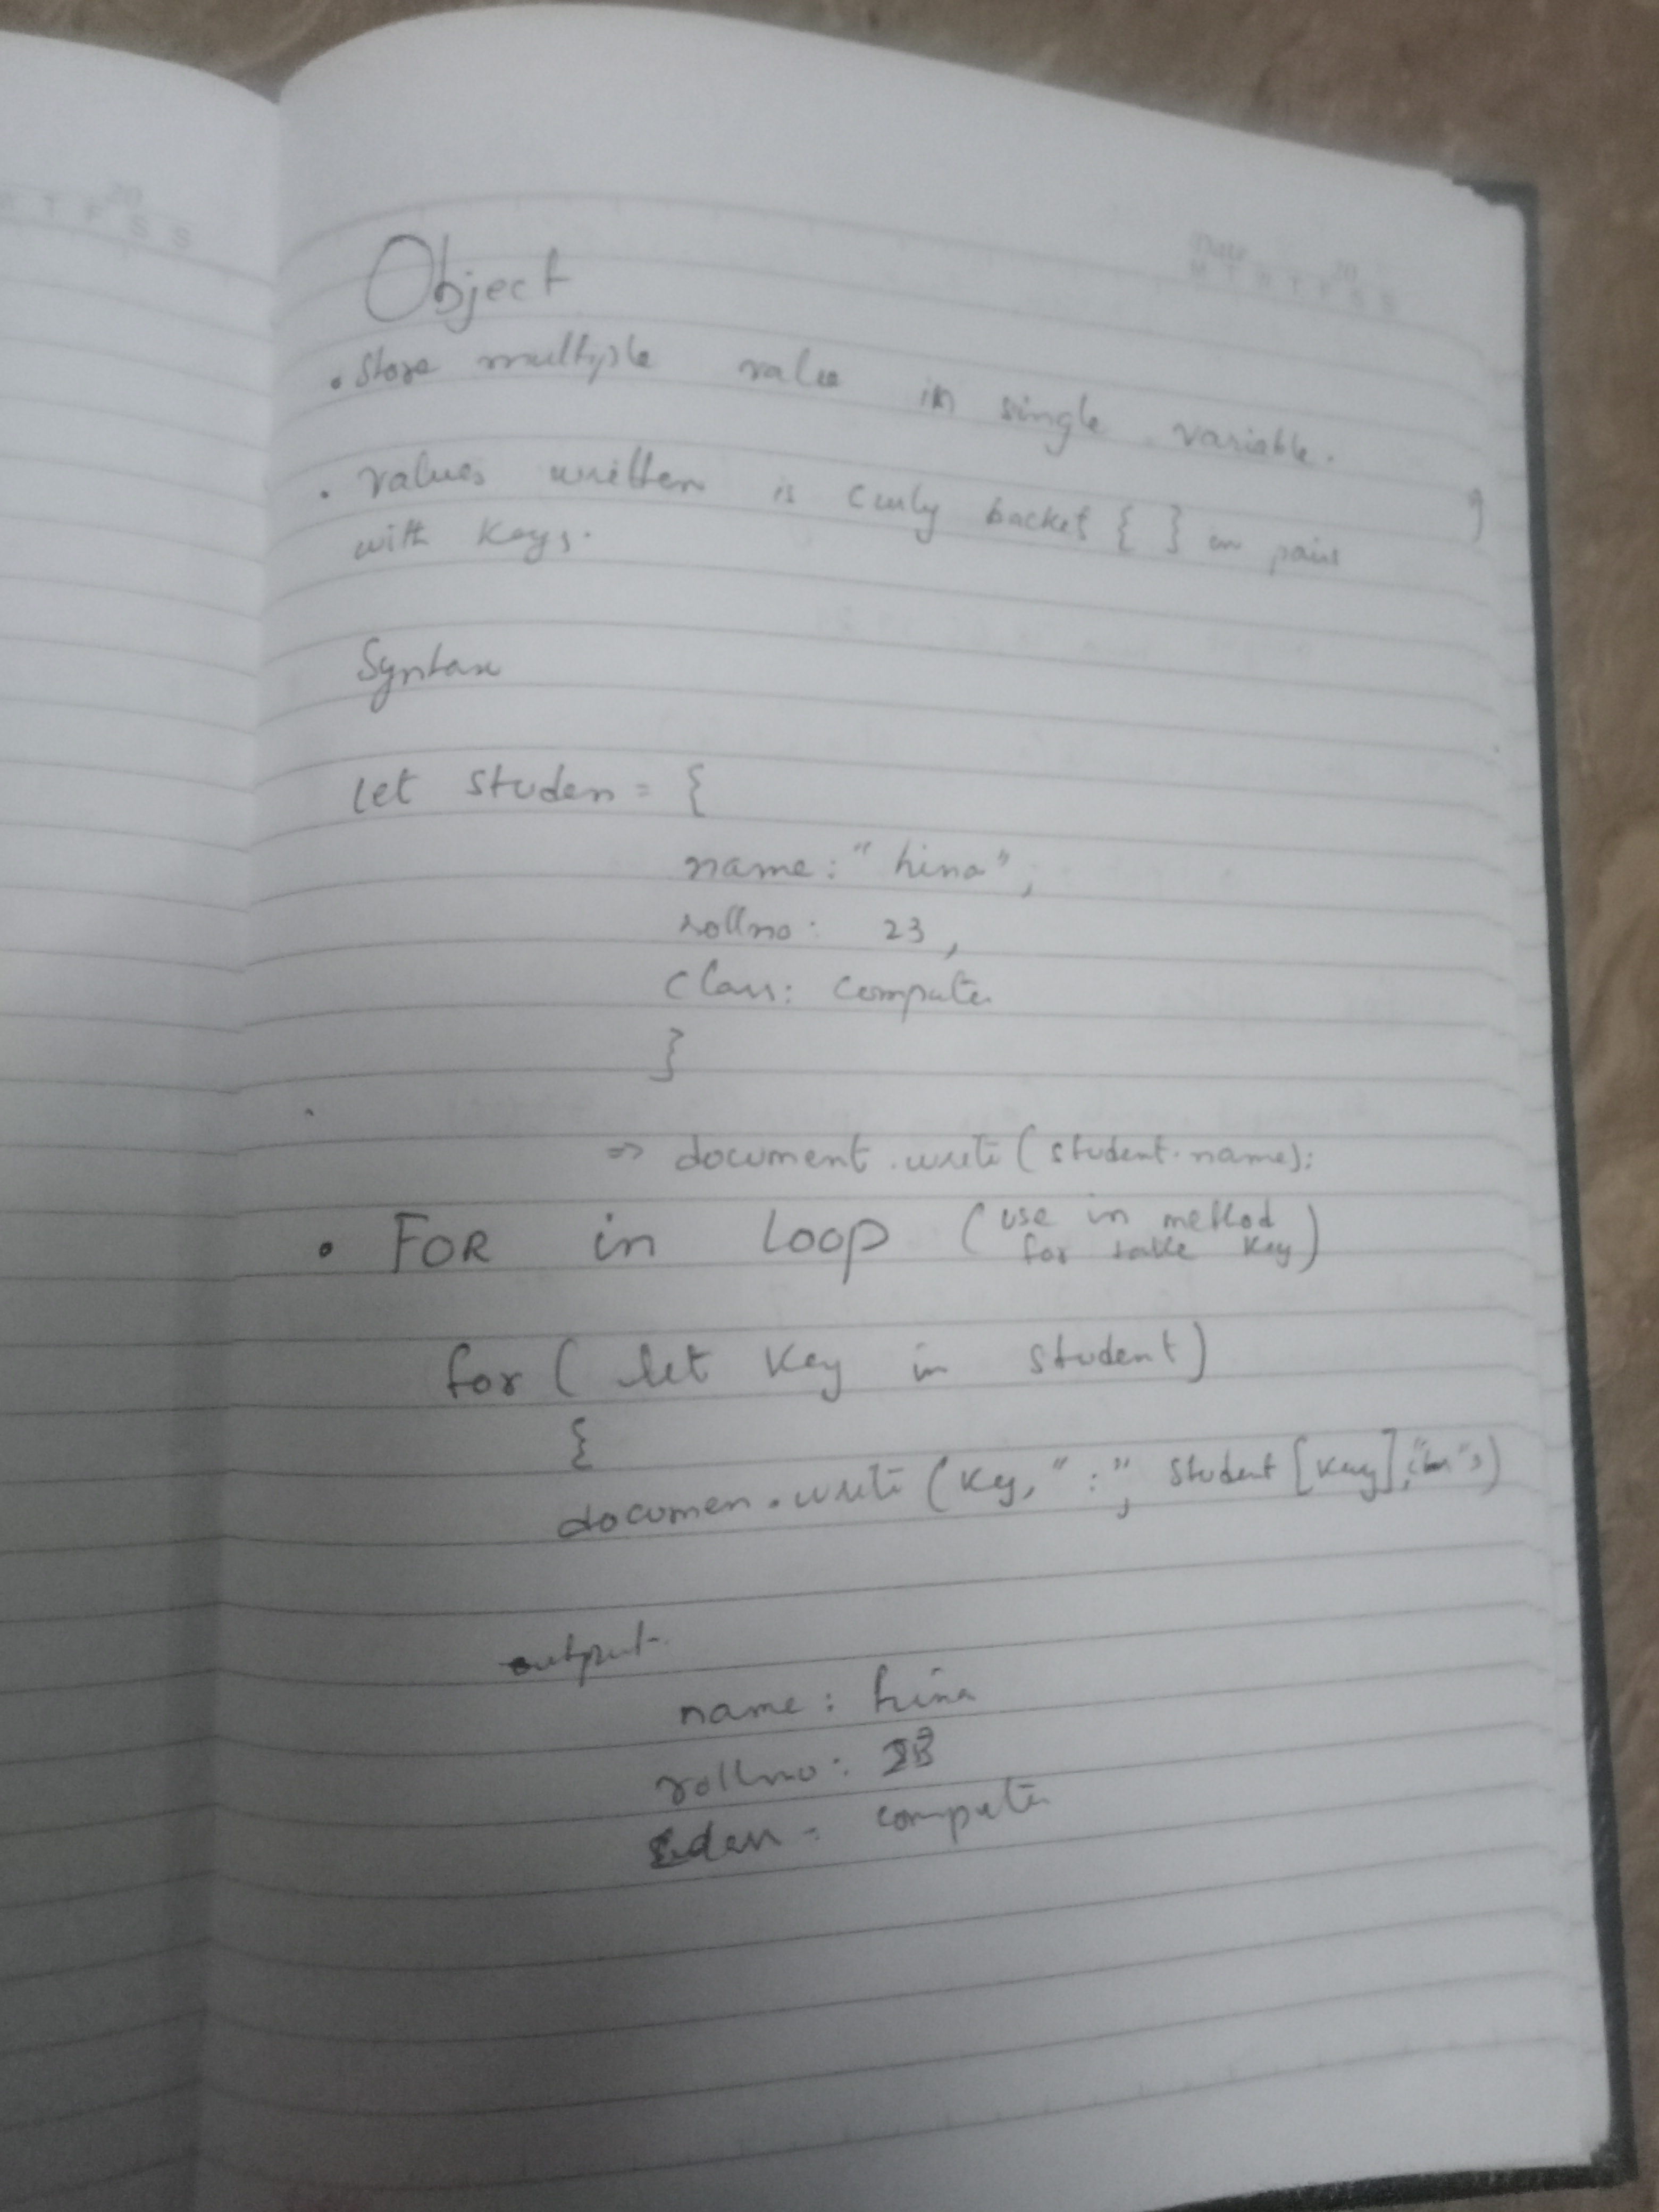 Object
• Store multiple value in single variable.
• values written is curly backet { } in pairs
with keys.
Syntax
let studen = {
name: "hina",
rollno: 23,
class: computer
}
=> document.write(student.name);
• FOR in LOOP (use in method
for take key)
for ( let key in student)
{
documen.write (key, ":", student [key],
output
name: hina
rollno: 23
computer